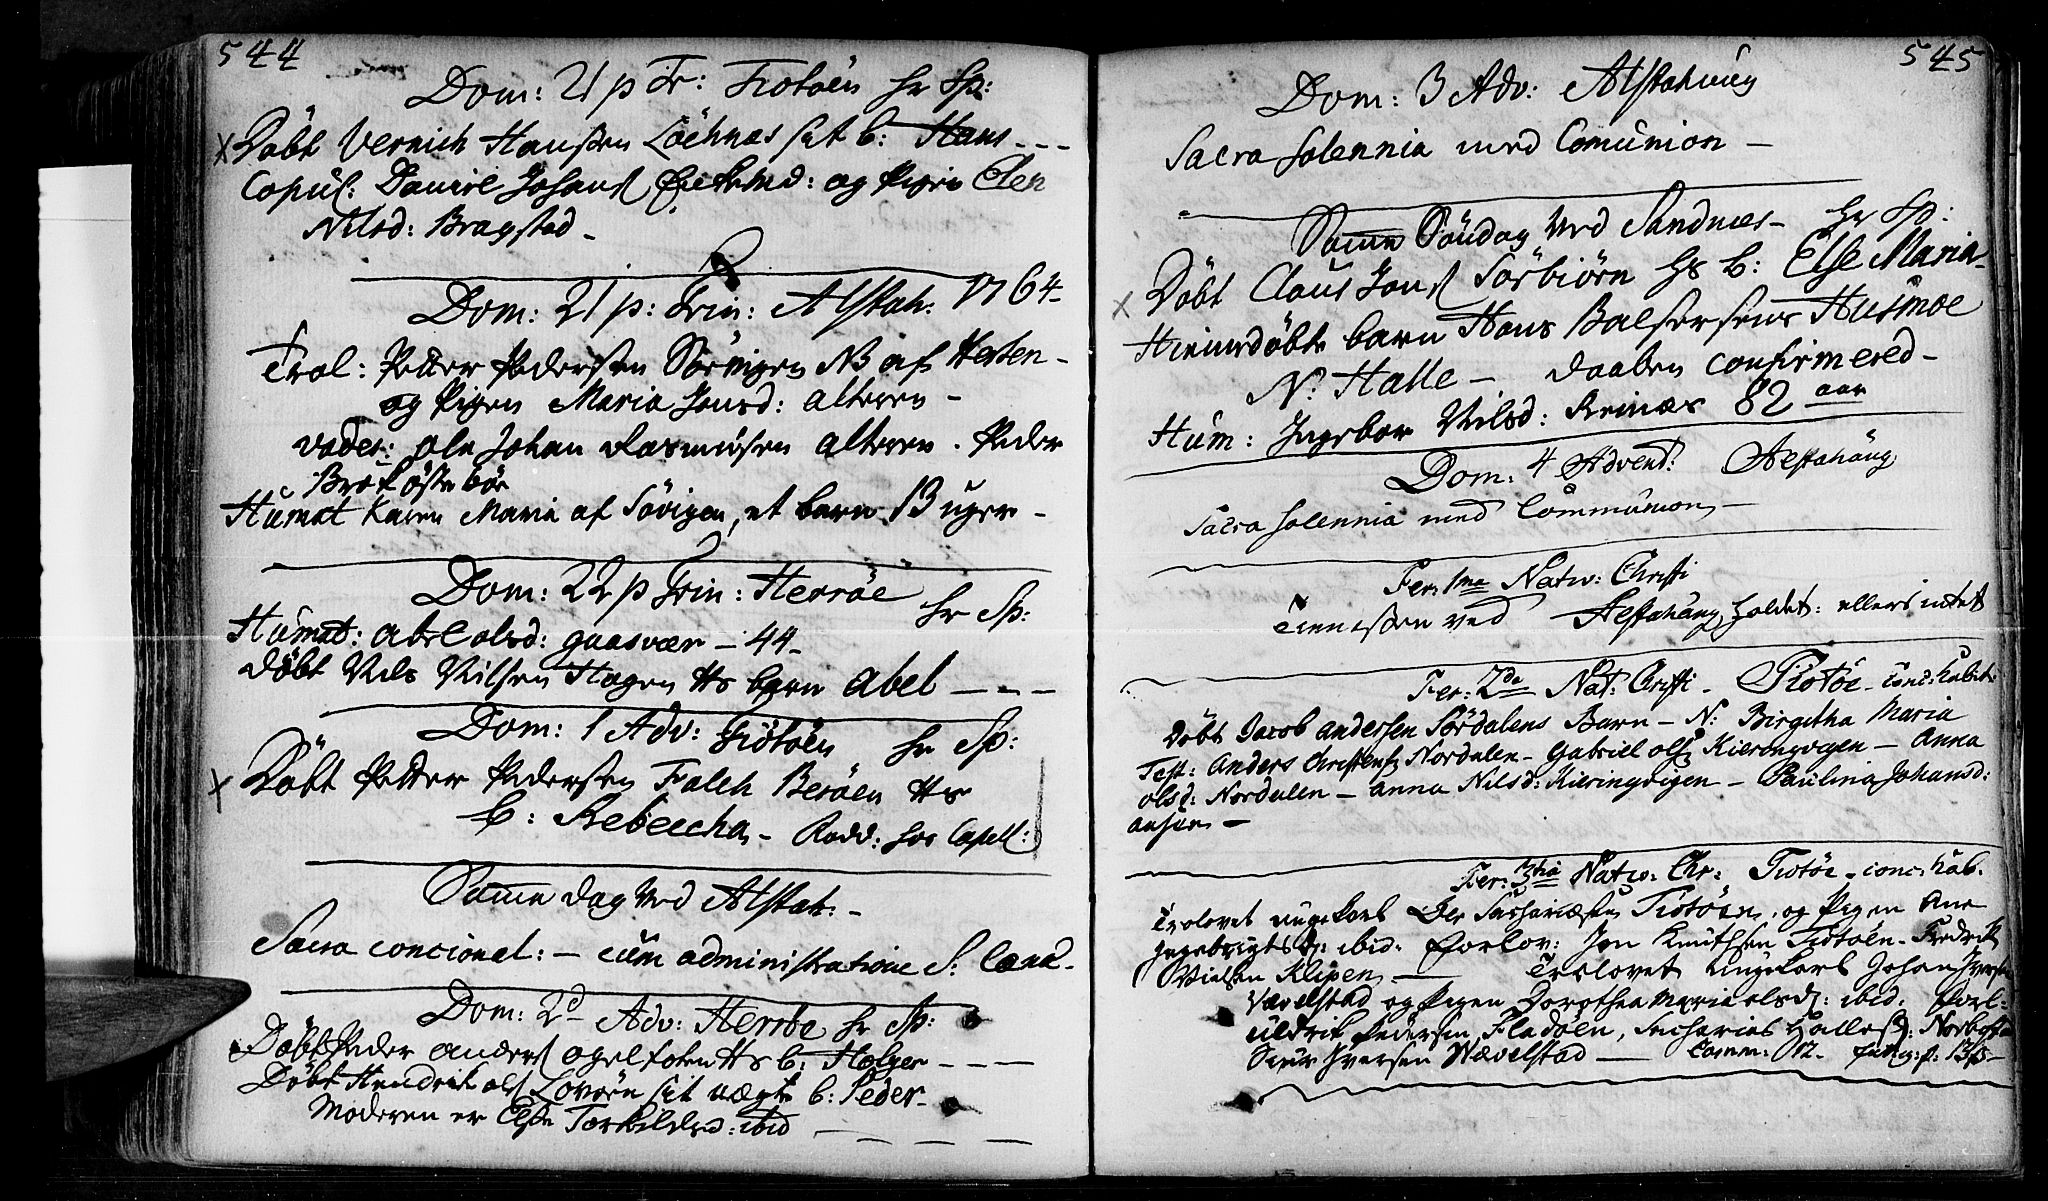 544
Dom: 21 p Tr: Tiøtøen hr Sp:
x Döbt Vernich Hansen Löchnæs sit b: Hans - - -
Copul: Daniel Johans og Pigen Elen
Nilsd: Bragstad -
Dom: 21 p: Trin: Alstah: 1764-
Trol: Petter Pedersen Sörvigen NB af Hesten -
og Pigen Maria Jonsd: Alteren -
vader: Ole Johan Rasmusen Alteren . Peder
Brok östebøe
Humat Karen Maria af Sövigen, et barn 13 uger -
Dom: 22 p Trin: Herröe hr Sp:
Humat: Abel olsd: gaasvær - 44 -
döbt Nils Nilsen Hagen Hs barn Abel - - -
Dom: 1 Adv: Tiötöen hr Sp:
x Döbt Petter Pedersen Falch Beröen Hs
b: Rebeccha - Radd: hos Capell:
Samme dag ved Alstah: -
Sacra concional: - cum administratione S: Cæna -
Dom: 2d Adv: Herröe hr Sp:
Döbt Peder anders Hs b: Holger - - -
Döbt Hendrik ols Lovöen sit uægte b: Peder -
Moderen er Else Torkildsd: ibid - - - -
545
Dom: 3 Adv: Alstahoug
Sacra Solennia med Comunion -
Samme Söndag ved Sandnes - hr Sp:
x Döbt Claus Jons Sörbiörn Hs b: Else Maria -
Hiemedöbte barn Hans Balsersens Husmoe
N: Halle - daaben confirmered -
Hum: Ingebor Nilsd: Reinæs 82 aar
Dom: 4 Advend: Alstahäug
Sacra Solennia med Communion -
Fer: 1ma Nativ: Christi
Tienesten ved Alstahäug holdet: ellers intet
Fer: 2da Nat: Christi - Tiötöe - conc: habit:
Döbt Jacob andersen Sördalens Barn - N: Birgitha Maria
Test: Anders Christens Nordalen - Gabriel ols Kieringvigen - Anna
olsd: Nordalen - anna Nilsd: Kieringvigen - Paulina Johansd:
Fer: 3tia Nativ: Chr: Tiötöe - conc: hab.
Trolovet ungekarl Ole Sachariæsen Tiötöen, og Pigen Ane
Ingebrigtsd: ibid: Forlov: Jon Knuthsen Tiötöen - Fredrik
Nielsen Klipen - Trolovet ungekarl Johan Iversen
Vævelstad og Pigen Dorothea Maria olsd: ibid: Forl:
uldrik Pedersen Fladöen, Sacharias
Iversen Wævelstad - Comm: 012.